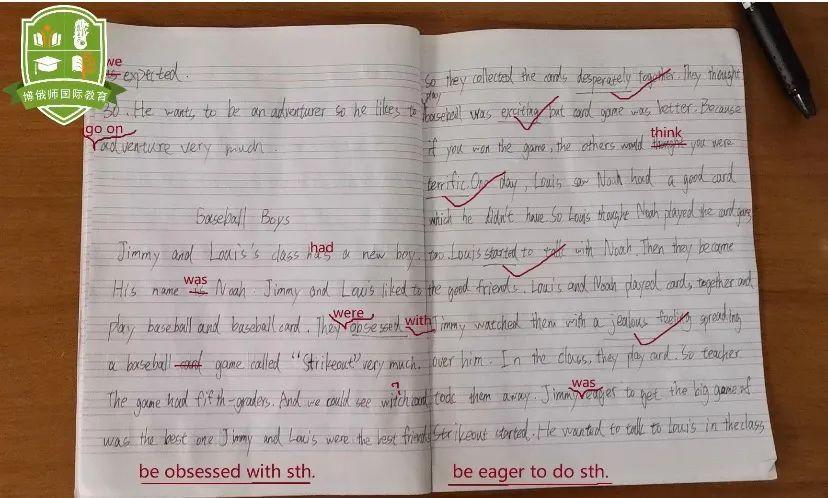 博俄师国际教育
we
as expected.
So. He wants to be an adventurer so he likes to
go on
adventure very much.
Baseball Boys
Jimmy and Louis's class has a new boy.
had
His name is Noah. Jimmy and Louis liked to
was
play baseball and baseball card. They obsessed
were
with
a baseball card game called "Strikeout" very much.
The game had fifth-graders. And we could see witch card
was the best one Jimmy and Louis were the best friends
be obsessed with sth.
So they collected the cards desperately together. They thought
play
baseball was exciting but card game was better. Because
if you won the game, the others would thought you were
think
terrific. One day, Louis saw Noah had a good card
which he didn't have. So Louis thought Noah played the card game
too. Louis started to talk with Noah. Then they became
the good friends. Louis and Noah played cards together and
Jimmy watched them with a jealous feeling spreading
over him. In the class, they play card. So teacher
took them away. Jimmy eager to get the big game of
was
Strikeout started. He wanted to talk to Louis in the class
be eager to do sth.